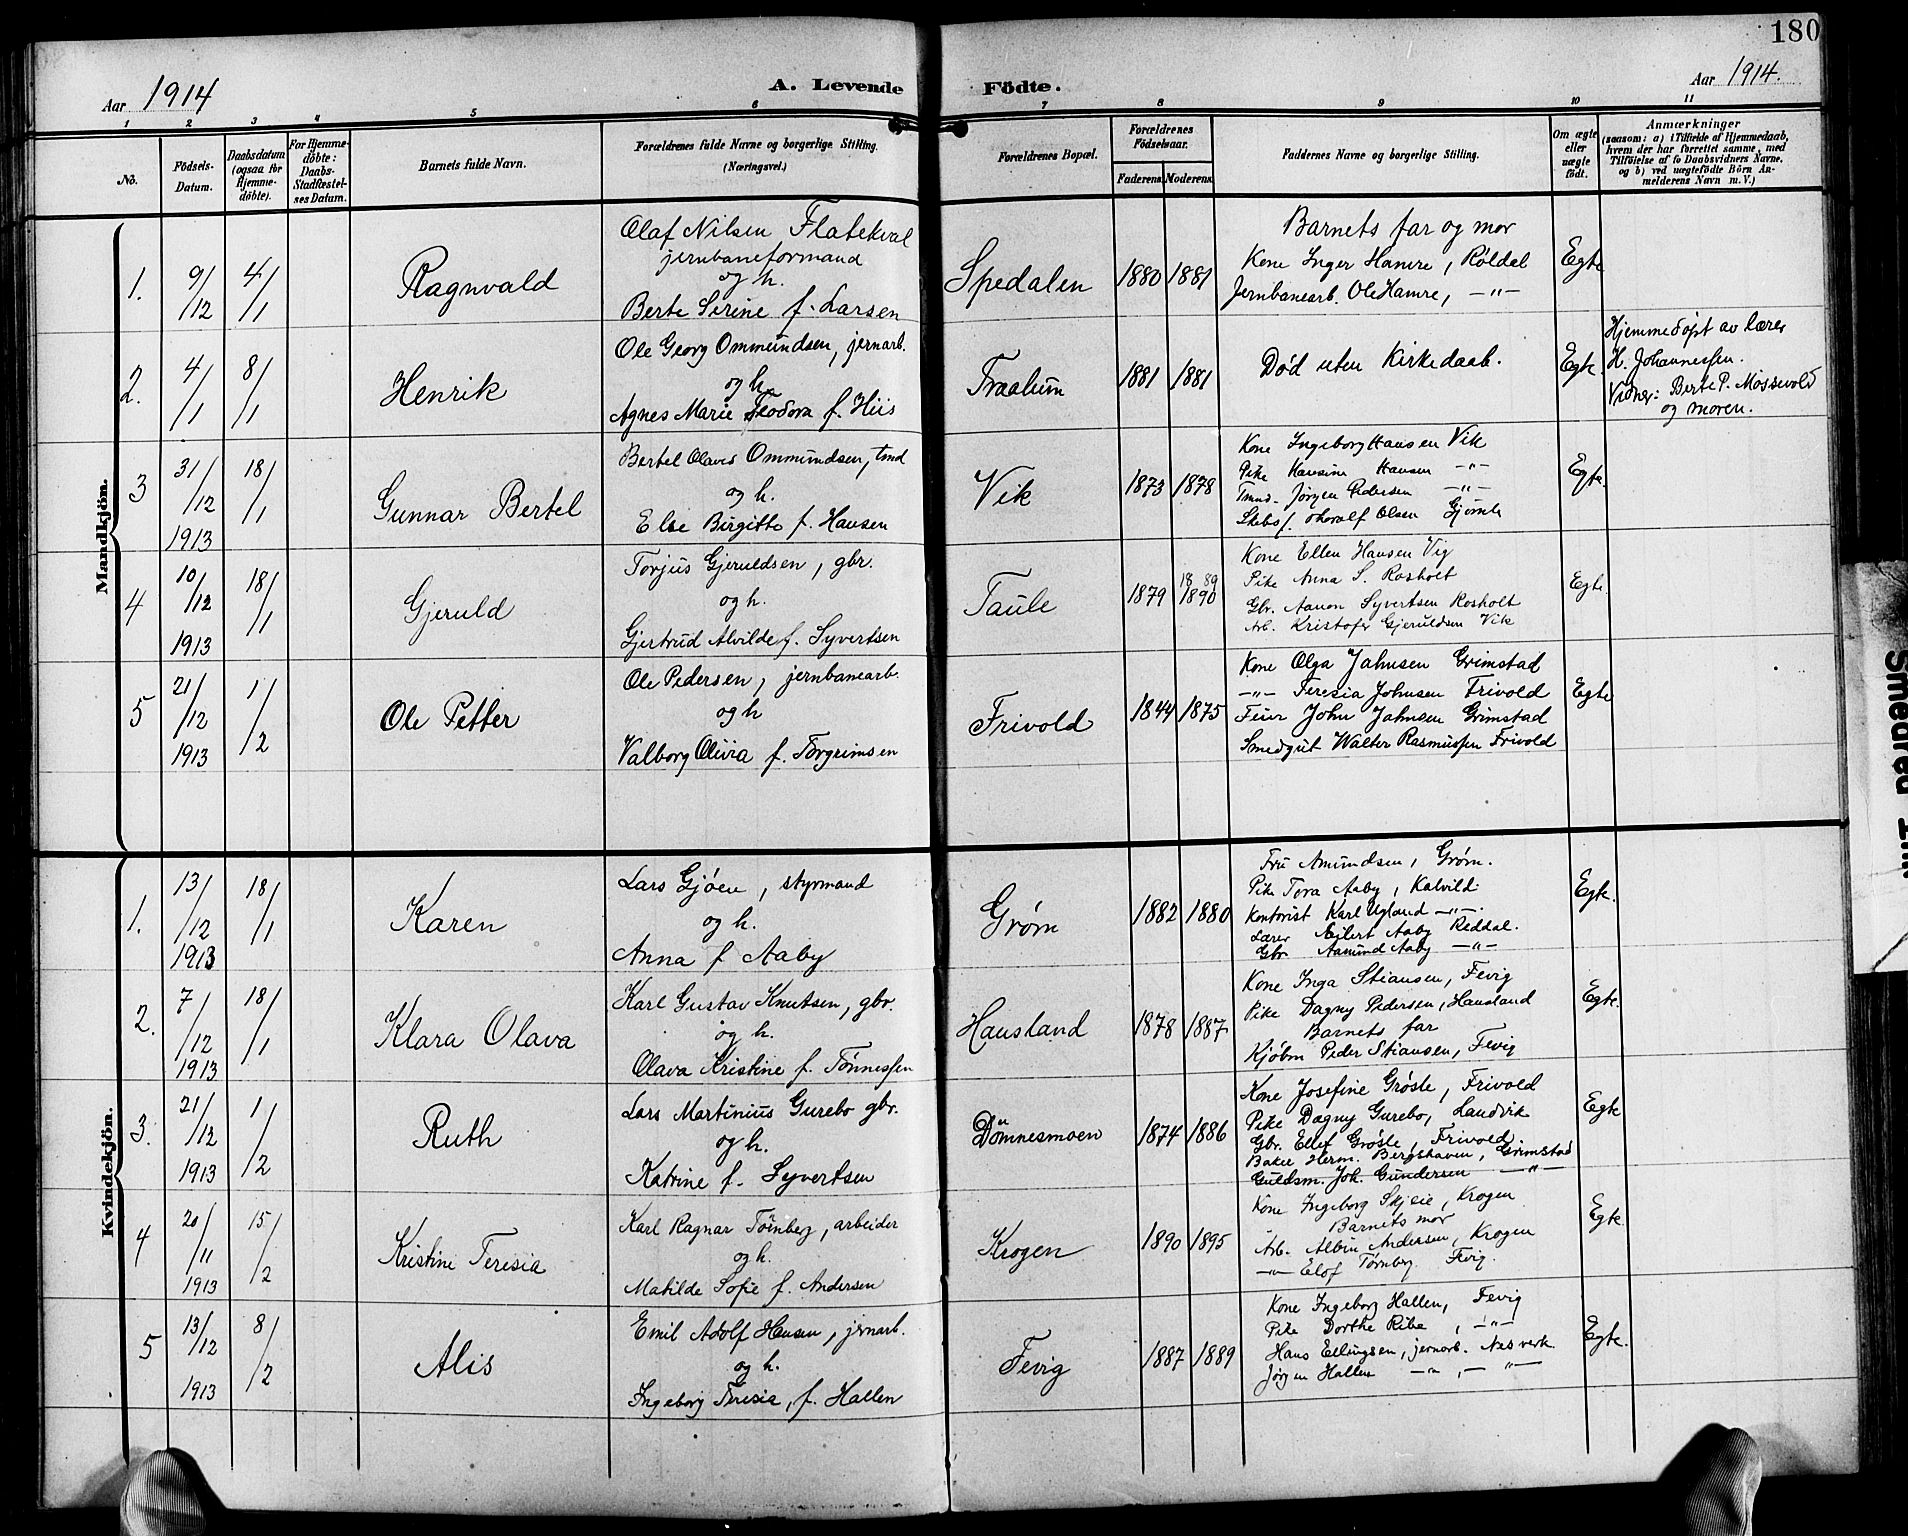 180
Aar 1914
A. Levende Födte.
Aar 1914.
1 2 3 4 5 6 7 8 9 10 11
No.
Födsels-Datum.
Daabsdatum (ogsaa for Hjemmedöbte).
For Hjemmedöbte: Daabs-Stadfæstelses Datum.
Barnets fulde Navn.
Forældrenes fulde Navne og borgerlige Stilling. (Næringsvei.)
Forældrenes Bopæl.
Forældrenes Födselsaar.
Faderens. Moderens.
Faddernes Navne og borgerlige Stilling.
Om ægte eller uægte födt.
Anmærkninger
(saasom: a) i Tilfælde af Hjemmedaab, hvem der har forrettet samme, med Tilföielse af to Daabsvidners Navne, og b) ved uægtefödte Börn Anmelderens Navn m. V.)
Mandkjön.
1. 9/12 4/1 Ragnvald
Olaf Nilsen Flatekval
jernbaneformand
og h.
Berte Serine f. Larsen
Spedalen 1880 1881
Barnets far og mor
Kone Inger Hamre, Røldal
Jernbanearb. Ole Hamre, -"-
Egte
2. 4/1 8/1 Henrik
Ole Georg Ommundsen, jernarb.
og h.
Agnes Marie Teodora f. Hiis
Traalum 1881 1881
Død uten Kirkedaab.
Egte.
Hjemmedöpt av lærer
H. Johannessen.
Vidner: Berte P. Mossevold
og moren.
3 31/12 1913 18/1 Gunnar Bertel
Bertel Olaves Ommundsen, tmd
og h.
Else Birgitte f. Hansen
Vik 1873 1878
Kone Ingeborg Hansen Vik
Pike Hansine Hansen -"-
Tmnd. Jørgen Pedersen -"-
Skibsf. Thoralf Olsen Gjømle
Egte.
4 10/12 1913 18/1 Gjeruld
Torjus Gjeruldsen, gbr.
og h.
Gjertrud Alvilde f. Syvertsen
Taule 1879 1889 1890
Kone Ellen Hansen Vig
Pike Anna S. Rosholt
Gbr. Aanon Syvertsen Rosholt
Arb. Kristofer Gjeruldsen Vik
Egte.
5 21/12 1913 1/2 Ole Petter
Ole Pedersen, jernbanearb.
og h
Valborg Olivia f. Torgrimsen
Frivold 1844 1875
Kone Olga Jahnsen Grimstad
-"- Teresia Johnsen Frivold
Feier John Jahnsen Grimstad
Smedgut Walter Rasmussen Frivold
Egte
Kvindekjön.
1. 13/12 1913 18/1 Karen
Lars Gjøen, styrmand
og h.
Anna f. Aaby
Grøm 1882 1880
Fru Amundsen, Grøm.
Pike Tora Aaby, Kalvild.
Kontorist Karl Ugland -"-.
Lærer Eilert Aaby Reddal.
Gbr. Aamund Aaby -"-
Egte.
2. 7/12 1913 18/1 Klara Olava
Karl Gustav Knutsen, gbr.
og h.
Olava Kristine f. Tønnessen
Hausland 1878 1887
Kone Inga Stiansen, Fevig
Pike Dagny Pedersen, Hausland
Barnets far
Kjöbm Peder Stiansen, Fevig
Egte.
3. 21/12 1913 1/2 Ruth
Lars Martinius Gurebo gbr.
og h.
Katrine f. Syvertsen
Dömnesmoen 1874 1886
Kone Josefine Grøsle, Frivold
Pike Dagny Gurebo, Landvik
Gbr. Ellef Grøsle, Frivold
Baker Herm. Bergshaven, Grimstad
Guldsm. Joh. Gundersen -"-
Egte
4 20/11 1913 15/2 Kristine Teresia
Karl Ragnar Törnberg, arbeider
og h.
Matilde Sofie f. Andersen
Krogen 1890 1895
Kone Ingeborg Skjeie, Krogen
Barnets mor
Arb. Albin Andersen, Krogen
-"- Elof Tørnberg Fevig.
Egte.
5 13/12 1913 8/2 Alis
Emil Adolf Hansen, jernarb.
og h.
Ingeborg Teresie, f. Hallen
Fevig 1887 1889
Kone Ingeborg Hallen, Fevig
Pike Dorthe Ribe, -"-
Hans Ellingsen, jernarb. Nesverk
Jørgen Hallen -"-, -"-
Egte.